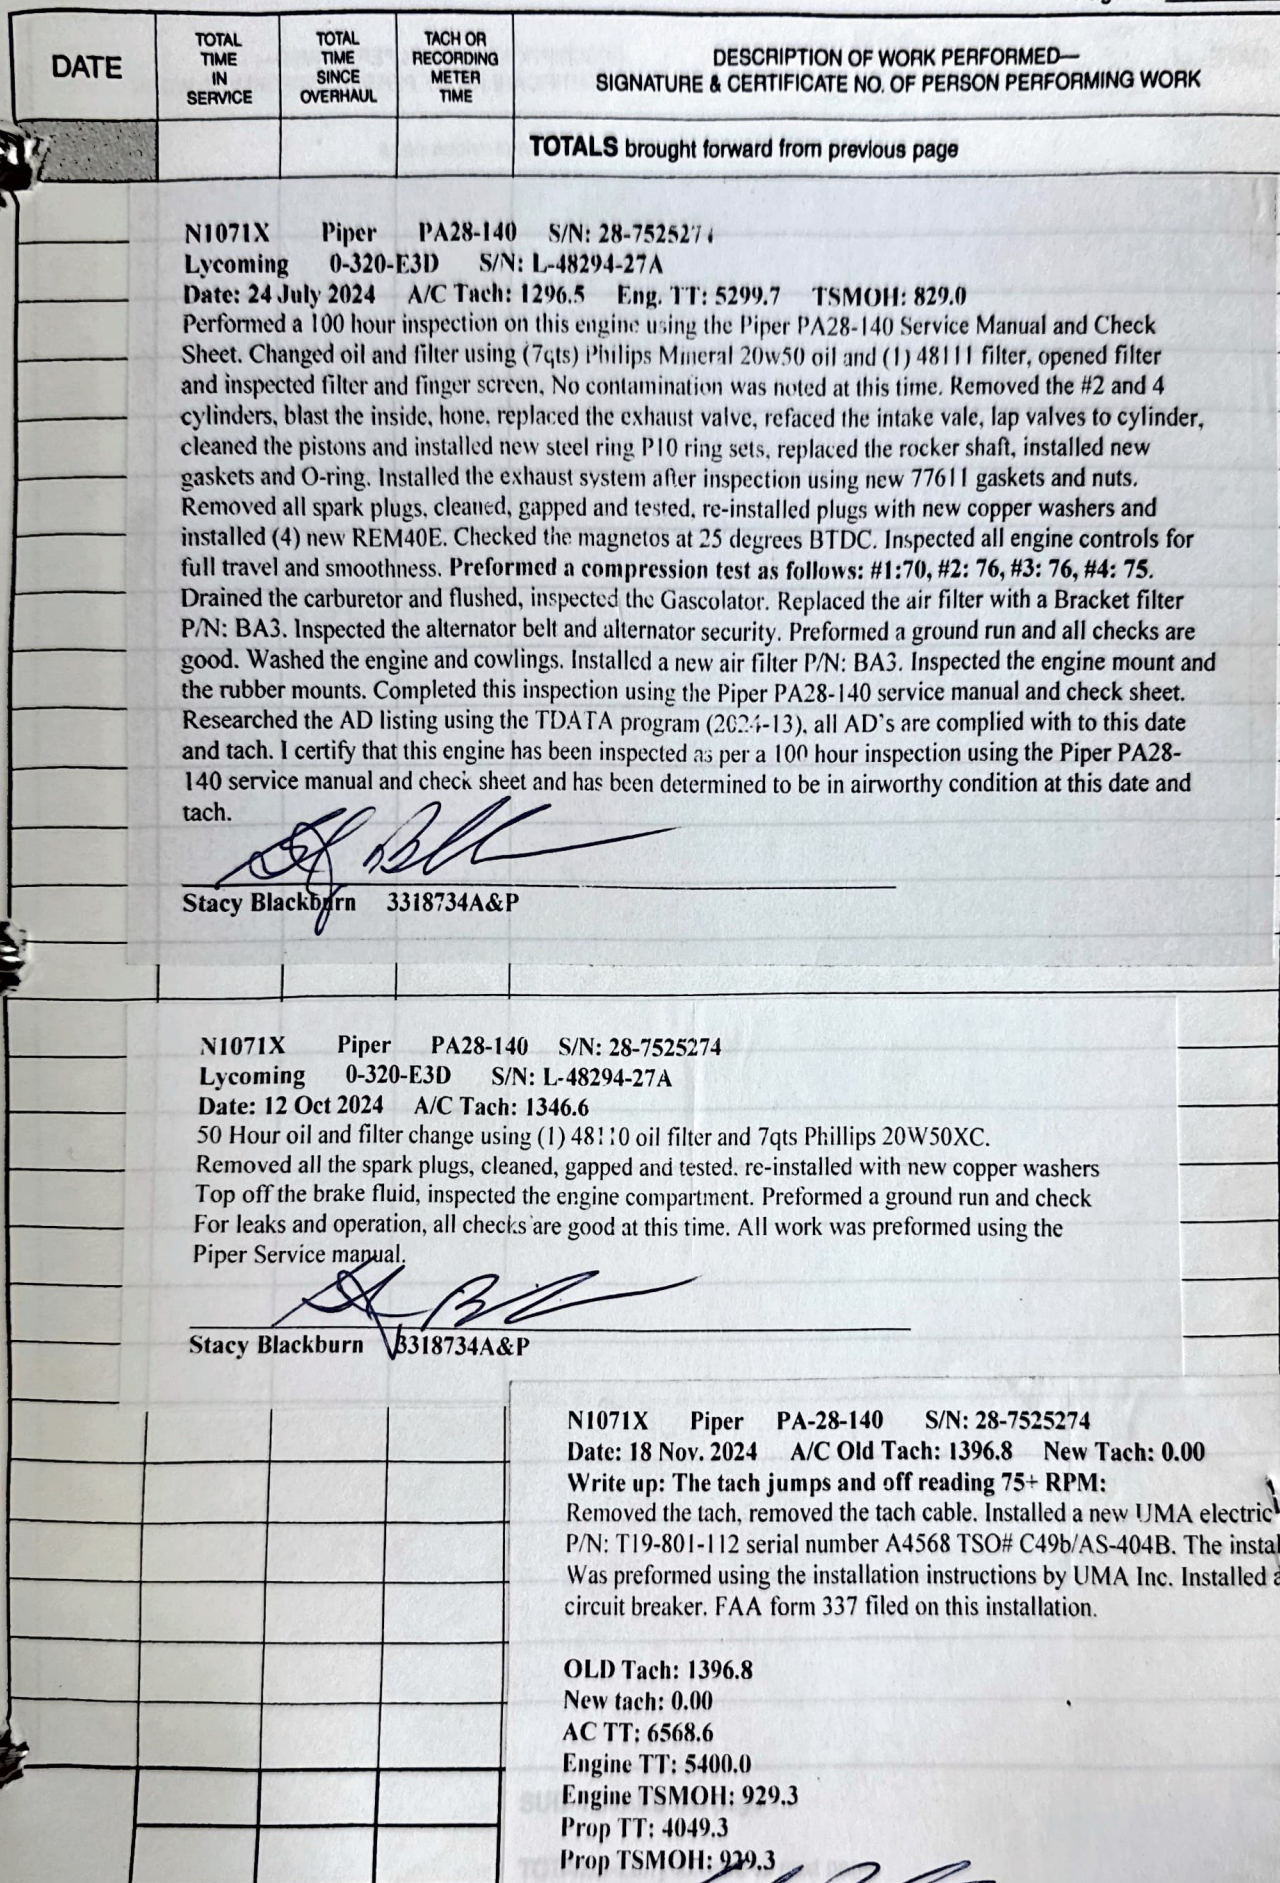 DATE
TOTAL TIME IN SERVICE
TOTAL TIME SINCE OVERHAUL
TACH OR RECORDING METER TIME
DESCRIPTION OF WORK PERFORMED—
SIGNATURE & CERTIFICATE NO. OF PERSON PERFORMING WORK
TOTALS brought forward from previous page
N1071X Piper PA28-140 S/N: 28-7525274
Lycoming 0-320-E3D S/N: L-48294-27A
Date: 24 July 2024 A/C Tach: 1296.5 Eng. TT: 5299.7 TSMOH: 829.0
Performed a 100 hour inspection on this engine using the Piper PA28-140 Service Manual and Check
Sheet. Changed oil and filter using (7qts) Philips Mineral 20w50 oil and (1) 48111 filter, opened filter
and inspected filter and finger screen, No contamination was noted at this time. Removed the #2 and 4
cylinders, blast the inside, hone, replaced the exhaust valve, refaced the intake vale, lap valves to cylinder,
cleaned the pistons and installed new steel ring P10 ring sets, replaced the rocker shaft, installed new
gaskets and O-ring. Installed the exhaust system after inspection using new 77611 gaskets and nuts.
Removed all spark plugs, cleaned, gapped and tested, re-installed plugs with new copper washers and
installed (4) new REM40E. Checked the magnetos at 25 degrees BTDC. Inspected all engine controls for
full travel and smoothness. Preformed a compression test as follows: #1:70, #2: 76, #3: 76, #4: 75.
Drained the carburetor and flushed, inspected the Gascolator. Replaced the air filter with a Bracket filter
P/N: BA3. Inspected the alternator belt and alternator security. Preformed a ground run and all checks are
good. Washed the engine and cowlings. Installed a new air filter P/N: BA3. Inspected the engine mount and
the rubber mounts. Completed this inspection using the Piper PA28-140 service manual and check sheet.
Researched the AD listing using the TDATA program (2024-13), all AD's are complied with to this date
and tach. I certify that this engine has been inspected as per a 100 hour inspection using the Piper PA28-
140 service manual and check sheet and has been determined to be in airworthy condition at this date and
tach.
Stacy Blackburn 3318734A&P
N1071X Piper PA28-140 S/N: 28-7525274
Lycoming 0-320-E3D S/N: L-48294-27A
Date: 12 Oct 2024 A/C Tach: 1346.6
50 Hour oil and filter change using (1) 48110 oil filter and 7qts Phillips 20W50XC.
Removed all the spark plugs, cleaned, gapped and tested. re-installed with new copper washers
Top off the brake fluid, inspected the engine compartment. Preformed a ground run and check
For leaks and operation, all checks are good at this time. All work was preformed using the
Piper Service manual.
Stacy Blackburn 3318734A&P
N1071X Piper PA-28-140 S/N: 28-7525274
Date: 18 Nov. 2024 A/C Old Tach: 1396.8 New Tach: 0.00
Write up: The tach jumps and off reading 75+ RPM:
Removed the tach, removed the tach cable. Installed a new UMA electric
P/N: T19-801-112 serial number A4568 TSO# C49b/AS-404B. The instal
Was preformed using the installation instructions by UMA Inc. Installed a
circuit breaker. FAA form 337 filed on this installation.
OLD Tach: 1396.8
New tach: 0.00
AC TT: 6568.6
Engine TT: 5400.0
Engine TSMOH: 929.3
Prop TT: 4049.3
Prop TSMOH: 929.3